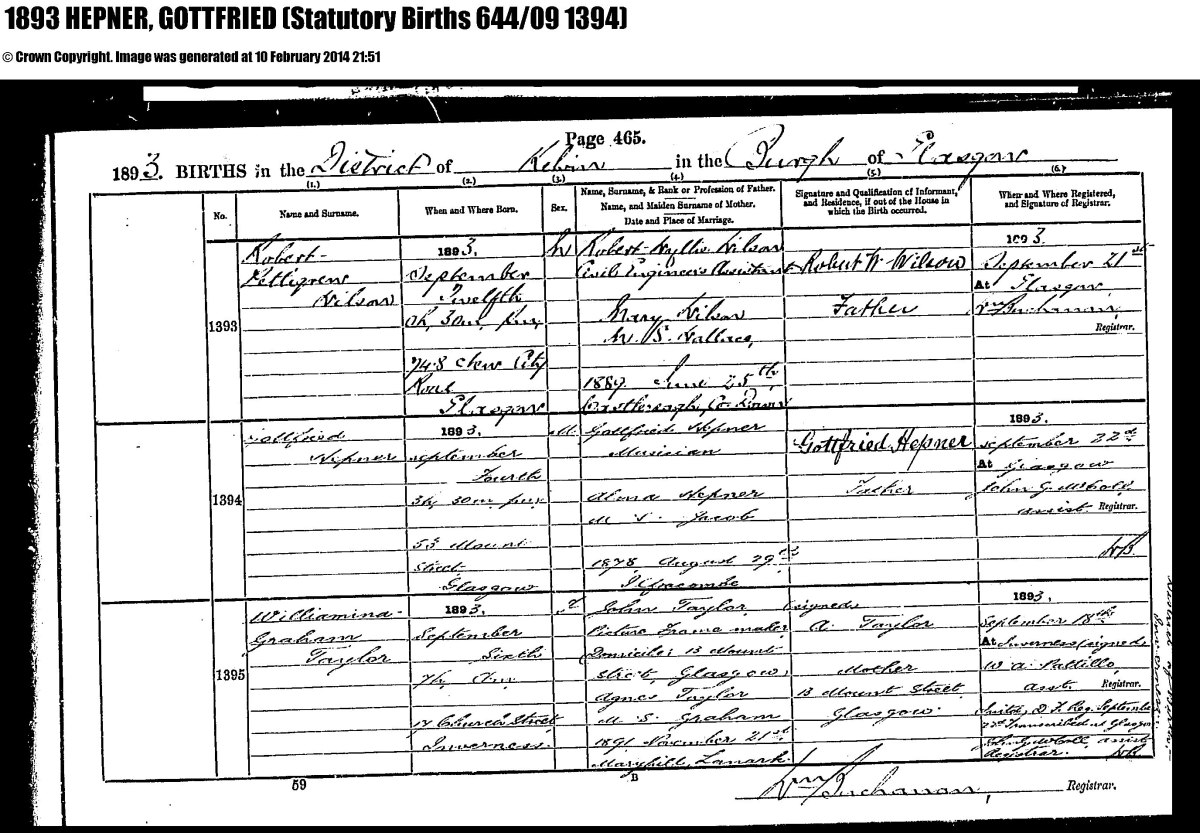 1893 HEPNER, GOTTFRIED (Statutory Births 644/09 1394)
© Crown Copyright. Image was generated at 10 February 2014 21:51
Page 465.
1893. BIRTHS in the District of Kelvin in the Burgh of Glasgow
(1.) (2.) (3.) (4.) (5.) (6.)
No.
Name and Surname.
When and Where Born.
Sex.
Name, Surname, & Rank or Profession of Father.
Name, and Maiden Surname of Mother.
Date and Place of Marriage.
Signature and Qualification of Informant,
and Residence, if out of the House in
which the Birth occurred.
When and Where Registered,
and Signature of Registrar.
1393
Robert
Pettigrew
Wilson
1893.
September
Twelfth
0h, 30m, p.m.
748 New City
Road
Glasgow
M
Robert Wilson
Civil Engineer's Assistant
Mary Wilson
M. S. Wallace,
1889. June 25th
Co. Down
Robert W Wilson
Father
1893.
September 21st
At Glasgow
Wm Buchanan,
Registrar.
1394
Gottfried
Hepner
1893.
September
Fourth
3h, 30m p.m.
53 Mount
Street
Glasgow
M.
Gottfried Hepner
Musician
Alma Hepner
M. S. Jacob
1878, August 29th
Ilfracombe
Gottfried Hepner
Father
1893.
September 22nd
At Glasgow
John G.
assist. Registrar.
WB
1395
Williamina
Graham
Taylor
1893.
September
Sixth
7h, a.m.
17 Church Street
Inverness.
F
John Taylor
Picture frame maker
Domicile; 13 Mount
Street, Glasgow,
Agnes Taylor
M. S. Graham
1891, November 21st
Maryhill, Lanark.
signed
A. Taylor
Mother
13 Mount Street
Glasgow.
1893.
September 18th
At Inverness (signed
W. A. Pattillo
Asst. Registrar.
Transcribed at Glasgow
assist
Registrar. WB
59
B
Wm Buchanan, Registrar.